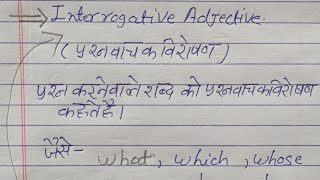 Interrogative Adjective.
(प्रश्नवाचक विशेषण)
प्रश्न करनेवाले शब्द को प्रश्नवाचक विशेषण
कहते है।
जैसे- what, which, whose